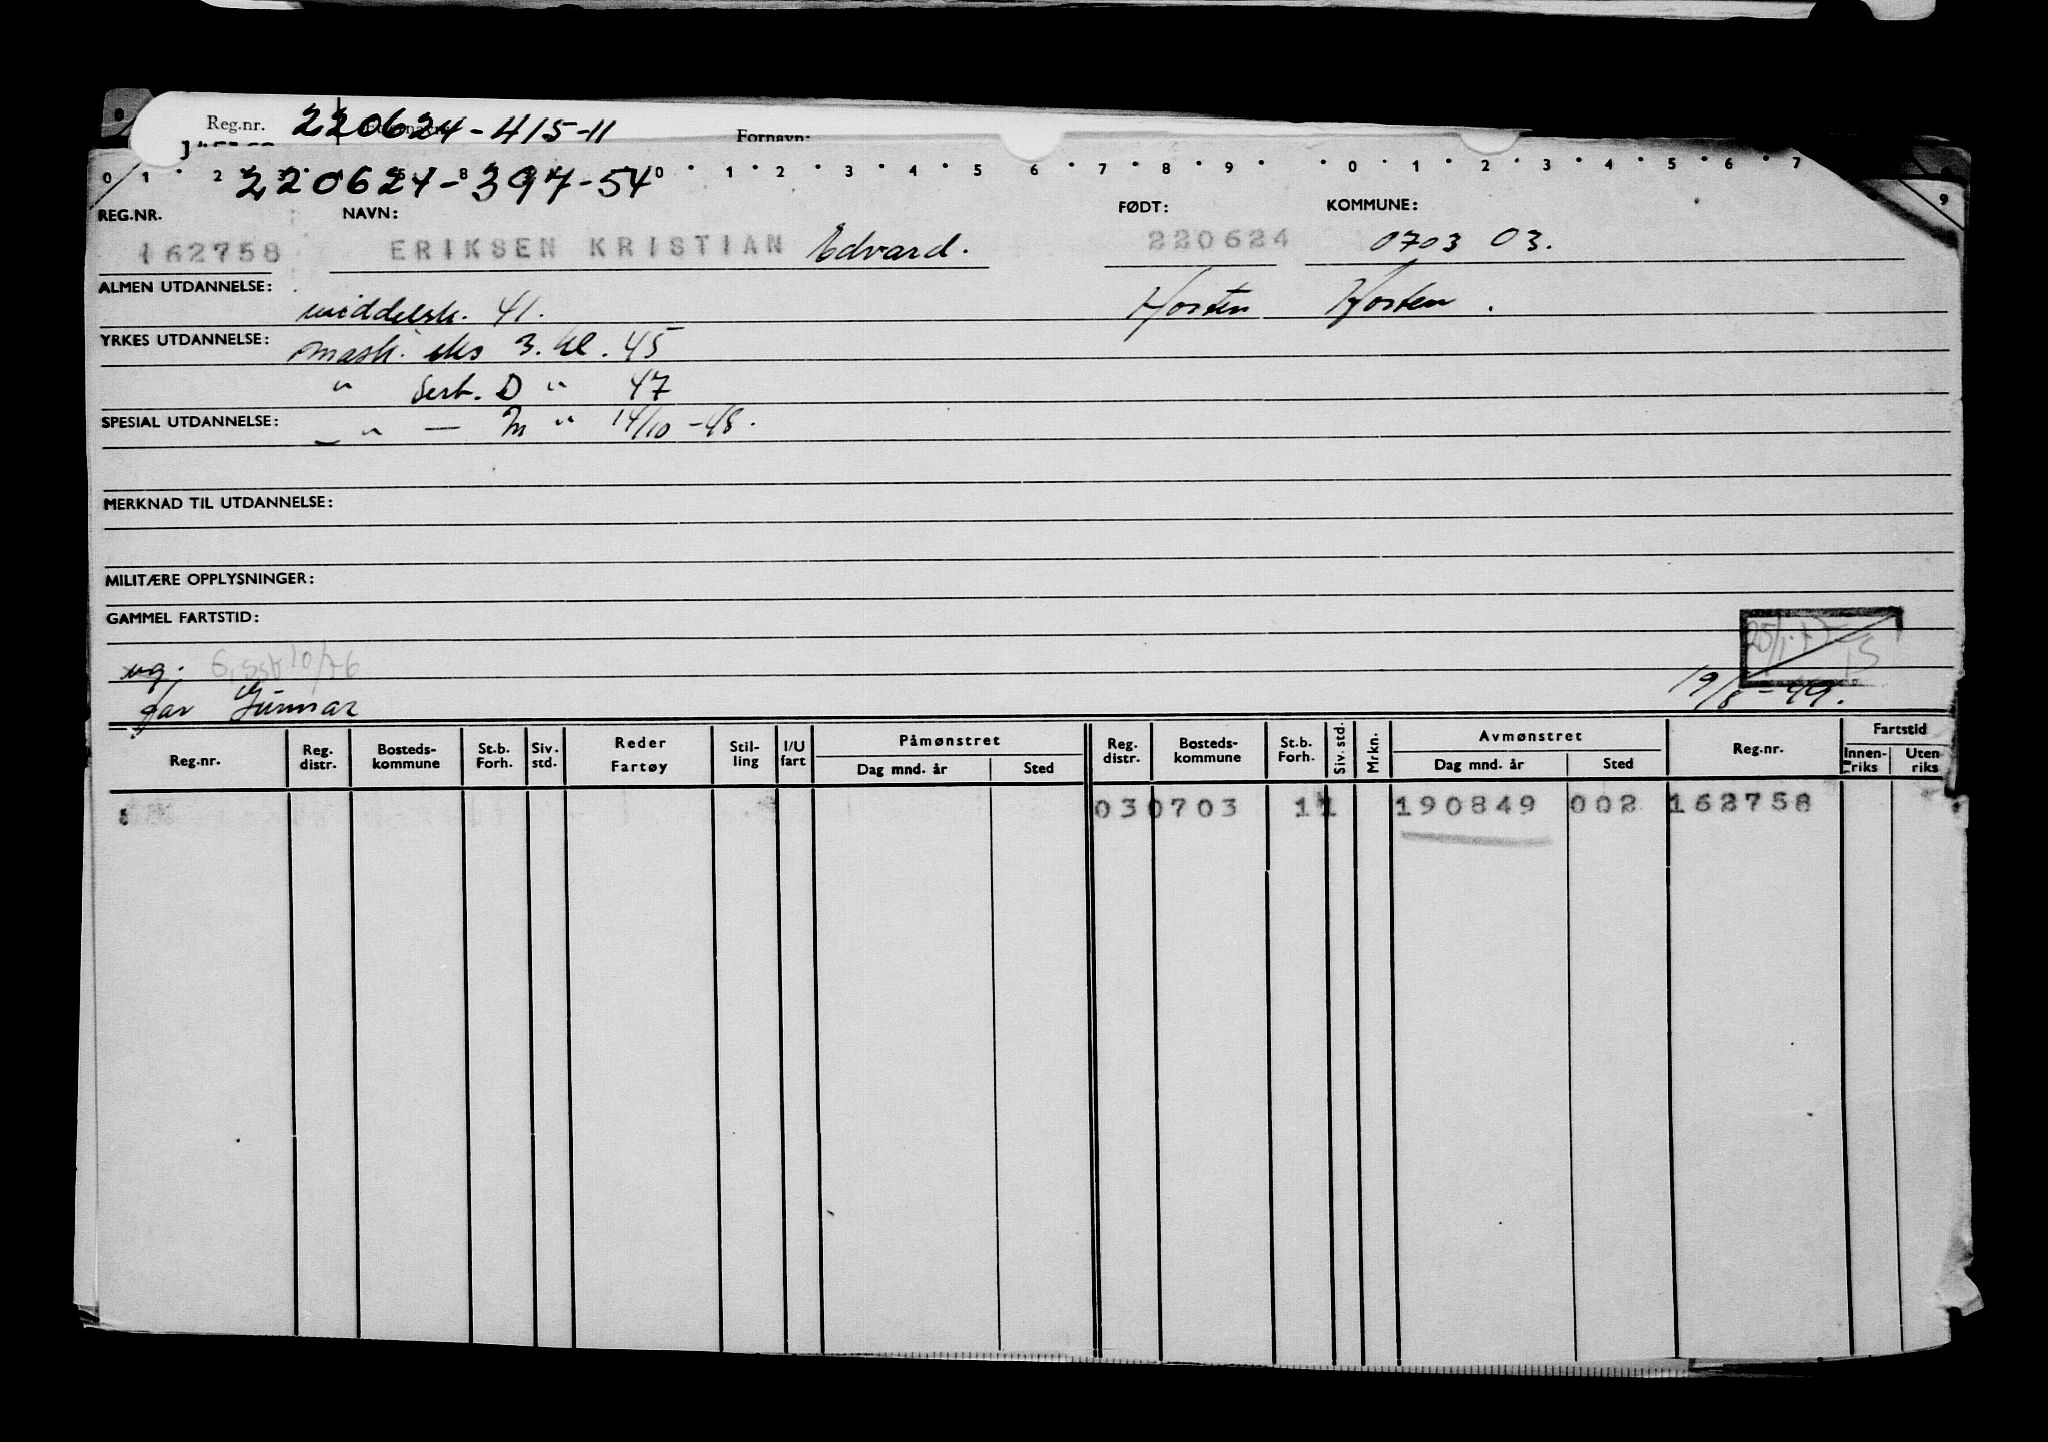 Reg.nr. 220624-415-11 Fornavn:
0 1 2 220624-397-54 0 1 2 3 4 5 6 7 8 9 0 1 2 3 4 5 6 7 9
REG.NR. NAVN: FØDT: KOMMUNE:
162758 ERIKSEN KRISTIAN Edvard. 220624 0703 03.
ALMEN UTDANNELSE: middelsk. 41. Horten Horten.
YRKES UTDANNELSE: mask. eks 3. kl. 45
" Sert. D " 47
SPESIAL UTDANNELSE: " — M " 14/10-48.
MERKNAD TIL UTDANNELSE:
MILITÆRE OPPLYSNINGER:
GAMMEL FARTSTID:
ug.
far Gunnar 19/8-49.
Reg.nr. Reg. distr. Bosteds-kommune St.b. Forh. Siv. std. Reder Fartøy Stil-ling I/U fart Påmønstret Dag mnd. år Sted Reg. distr. Bosteds-kommune St.b. Forh. Siv. std. Mrkn. Avmønstret Dag mnd. år Sted Reg.nr. Fartstid Innen-riks Uten riks
03 0703 11 190849 002 162758